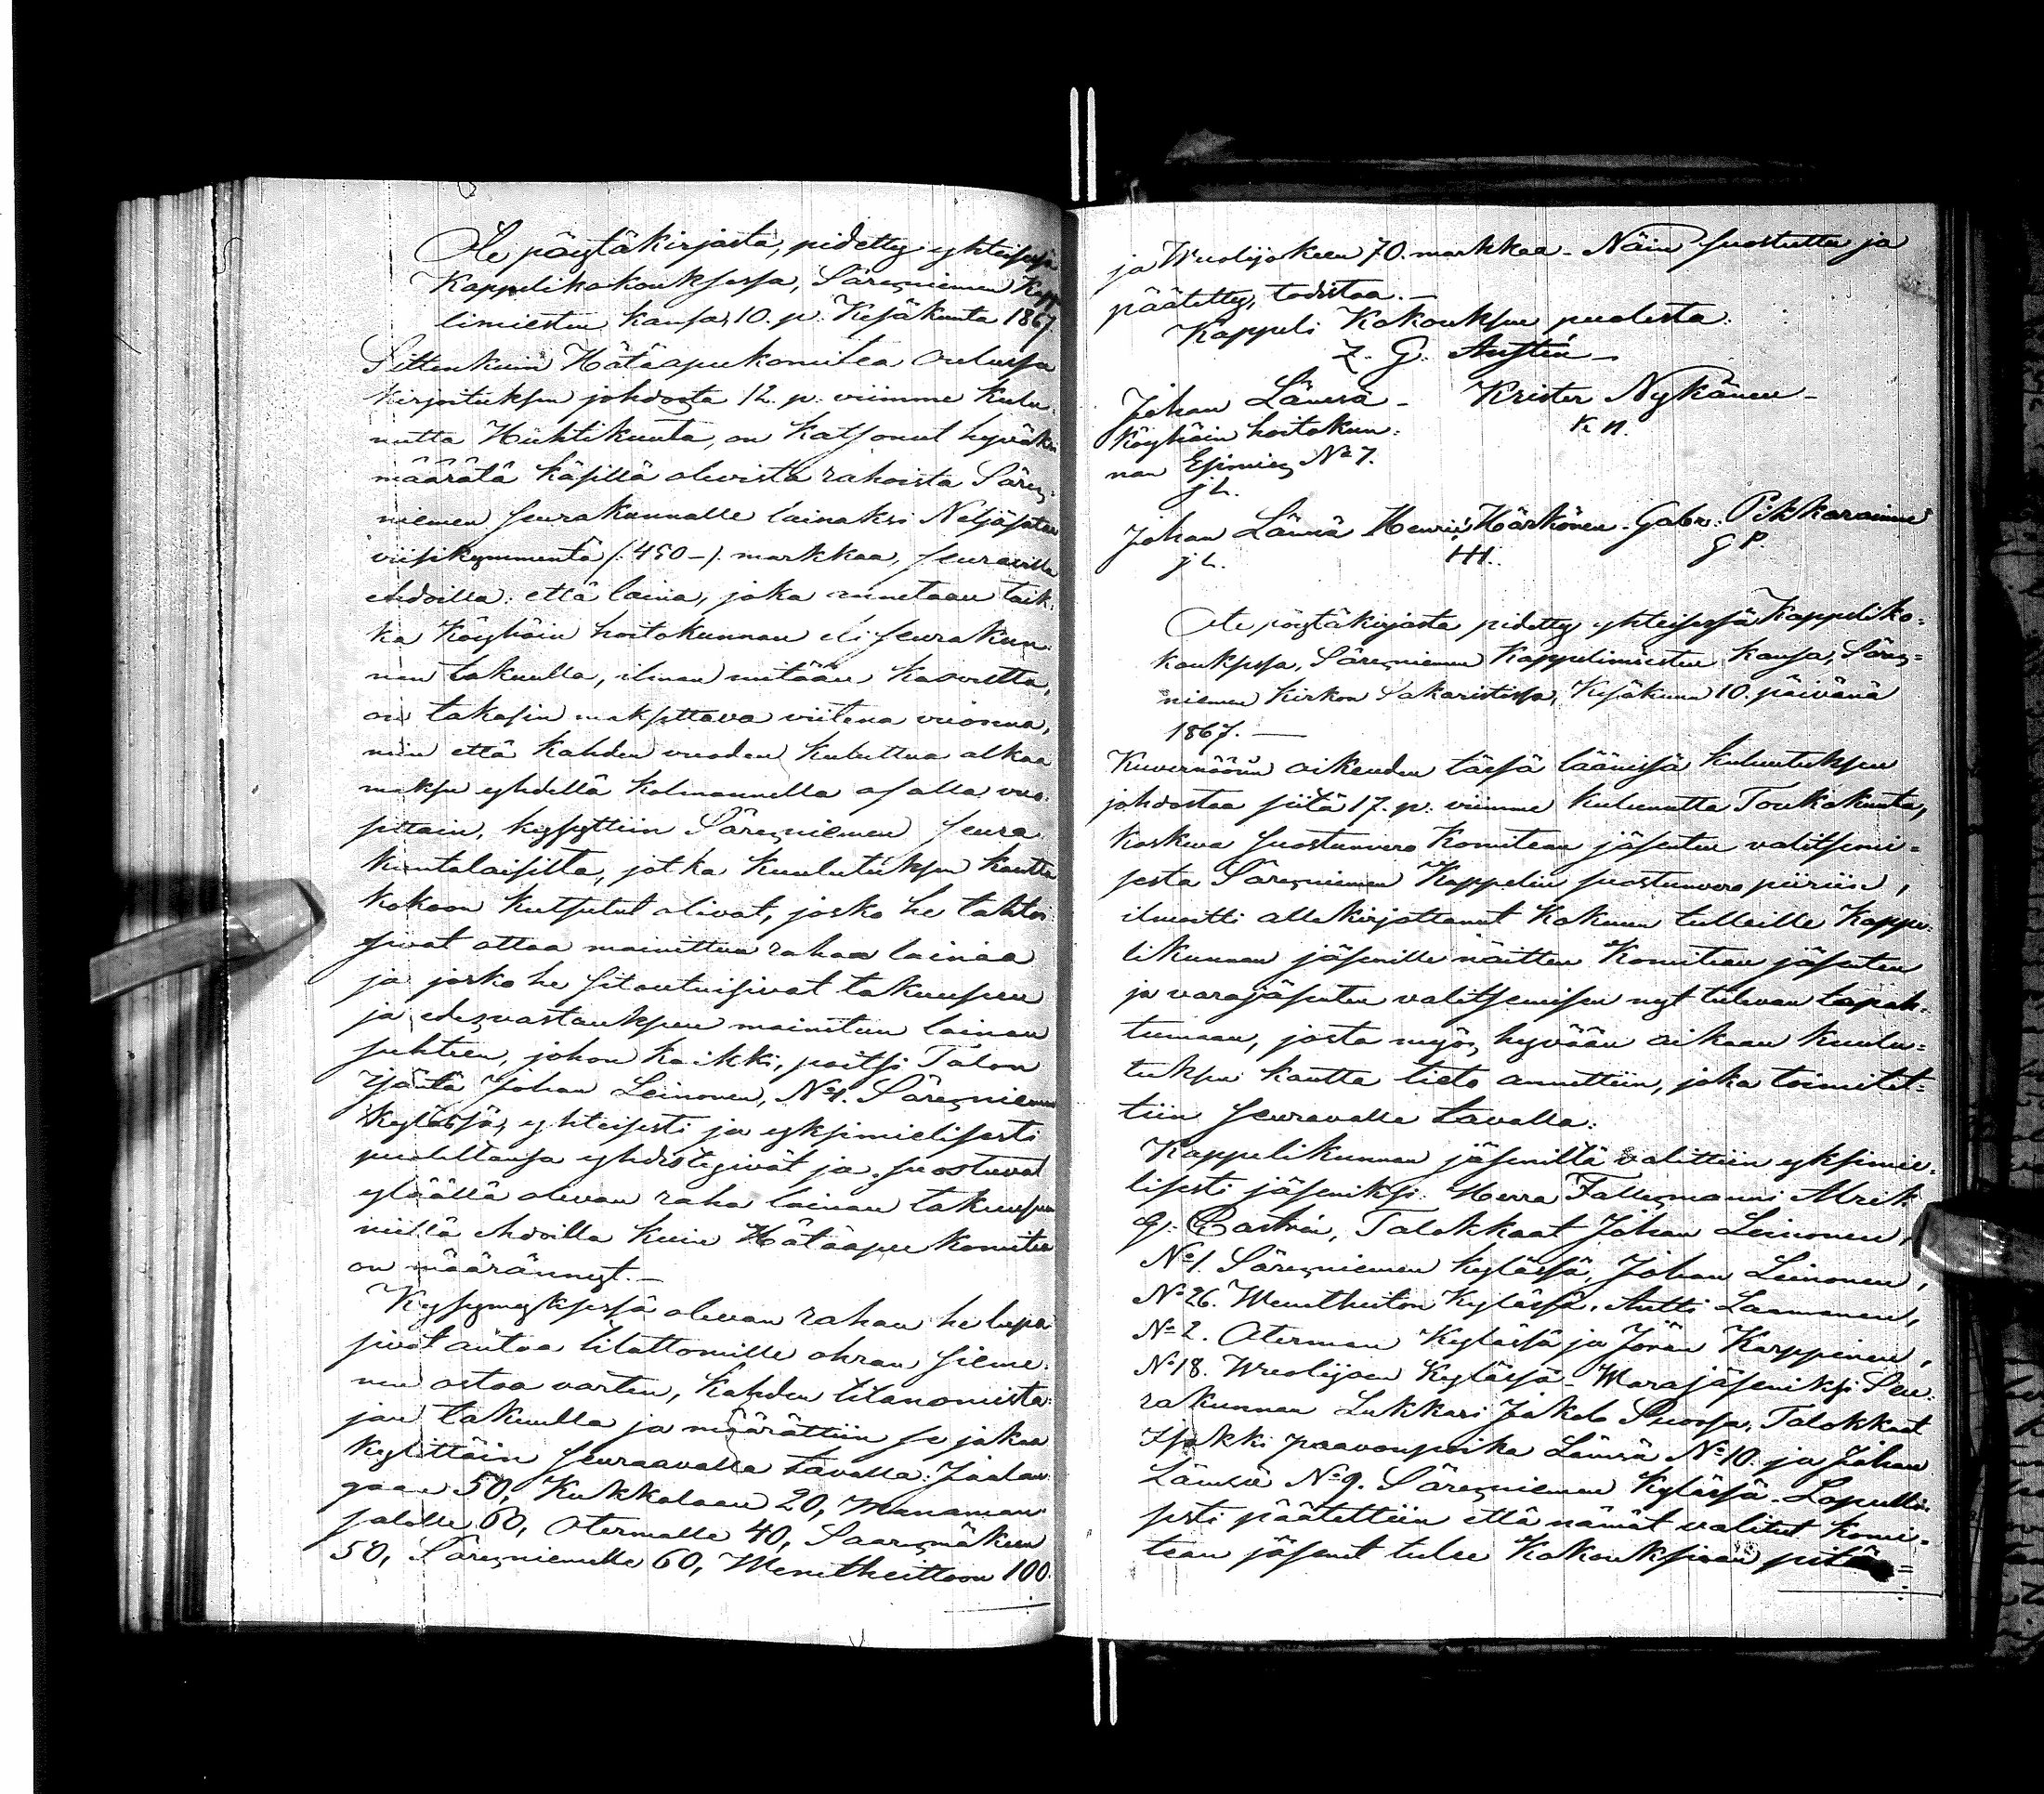 Ote pöytäkirjasta, pidetty yhteisessä
Kappelikokouksessa, Säresniemen Kappe
limiesten kanssa, 10. p. Kesäkuuta 1867.
Sittenkuin Hätäapukomitea Oulussa
kirjoituksen johdosta 12. p. viimme kulu-
nutta Huhtikuuta, on katsonut hyväksi
määrätä käsillä olevista rahoista Säres-
niemen seurakunnalle lainaksi Neljäsataa
viisikymmentä (: 450 – :) markkaa, seuravilla
ehdoilla: että laina, joka annetaan taik-
ka Köyhäin hoitokunnan eli seurakun-
nan takuulla, ilman mitään kasvutta,
on takasin maksettava viitenä vuonna,
niin että kahden vuoden kuluttua alkaa
maksu yhdellä kolmannella osalla vuo-
sittain, kysyttiin Säresniemen seura
kuntalaisilta, jotka kuulutuksen kautta
kokoon kutsutut olivat, josko he tahtoi-
sivat ottaa mainittua rahaa lainaa
ja josko he sitoutuisivat takuuseen
ja edesvastaukseen mainitun lainan
suhteen, johon kaikki, paitsi Talon
isäntä Johan Leinonen, No 1. Säresniemen
Kylässä, yhteisesti ja yksimielisesti
puoleltansa yhdistysivät ja suostuvat
ylläällä olevan raha lainan takuuseen
niillä ehdoilla kuin Hätäapu Komitea
on määrännyt. –
Kysymyksessä olevan rahan he lupa
sivat antaa tilattomille ohran sieme-
nen ostoa varten, kahden tilanomista-
jan takuulla ja määrättiin se jakaa
kylittäin seuraavalla tavalla: Jaalan
gaan 50, Kukkolaan 20, Manaman
salolle 60, Otermalle 40, Saaresmäkeen
50, Säresniemelle 60, Wenetheittoon 100.
ja Wuolijokeen 70. markkaa. – Näin suostuttu ja
päätetty, todistaa. –
Kappeli Kokouksen puolesta:
Z. G. Austén –
Johan Lämsä – Krister Nykänen –
Köyhäin hoitokun- K N.
nan Esimies No 7.
J L.
Johan Lämsä Henric Härkönen. Gabr: Pikkarainen
J L. HH. G P.
Ote pöytäkirjasta pidetty yhteisessä Kappeliko-
kouksessa, Säresniemen Kappelimiesten kansa, Säres-
niemen Kirkon Sakaristissa, Kesäkuun 10. päivänä
1867. –
Kuvernöörin oikeuden tässä läänissä kuulutuksen
johdostaa siitä 17. p. viimme kulunutta Toukokuuta,
koskeva suostunvero Komitean jäsenten valitsemi-
sesta Säresniemen Kappelin suostunvero piiriin,
ilmoitti allekirjottanut kokoon tulleille Kappe-
likunnan jäsenille näitten Komitean jäsenten
ja varajäsenten valitsemisen nyt tulevan tapah-
tumaan, josta myös hyvään aikaan kuulu-
tuksen kautta tieto annettiin, joka toimitet-
tiin seuravalla tavalla:
Kappelikunnan jäseniltä valittiin yksimie-
lisesti jäseniksi: Herra Fallesmanni Alrik
G. Castrén, Talokkaat Johan Leinonen,
No 1. Säresniemen kylässä, Johan Leinonen,
No 26. Wenetheiton Kylässä, Antti Laamanen,
No 2. Oterman Kylässä ja Jöran Karppinen,
No 18. Wuolijoen Kylässä. – Warajäseniksi Seu-
rakunnan Lukkari Jakob Snoosa, Talokkaat
Isakki paavonpoika Lämsä No 10. ja Johan
Lämsä No 9. Säresniemen Kylässä. – Lopulli-
sesti päätettiin että nämät valitut Komi-
tean jäsenet tulee Kokouksiaan pitä-